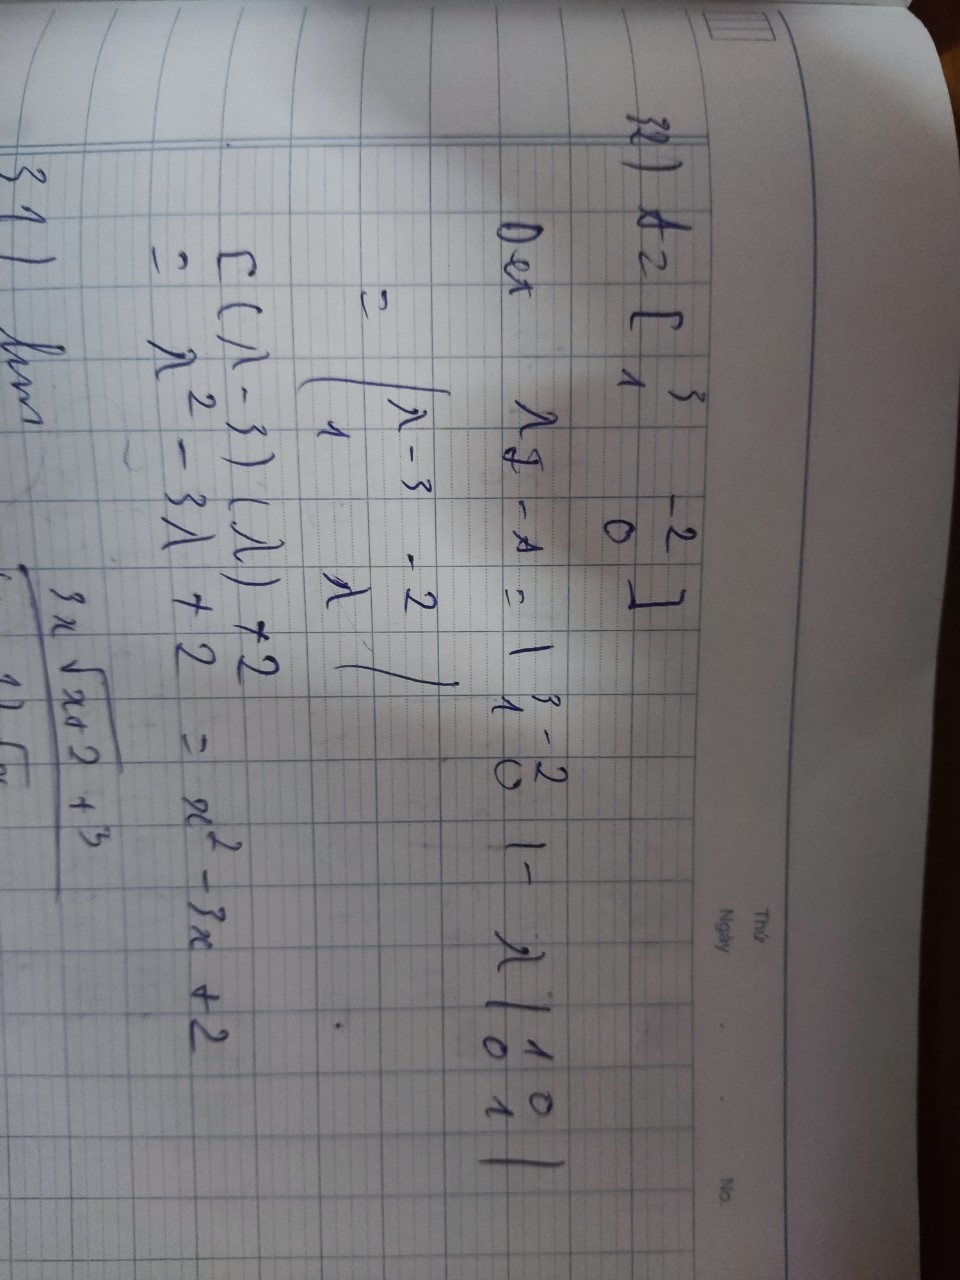 Thứ
Ngày
No.
32) A = [ 3 -2
1 0 ]
Det λI - A = | 3 -2 | - λ | 1 0
1 0 0 1 |
= | λ-3 -2
1 λ |
[(λ-3)(λ)+2
= λ² - 3λ + 2 = x² - 3x + 2
31) lim 3x√x+2 + 3